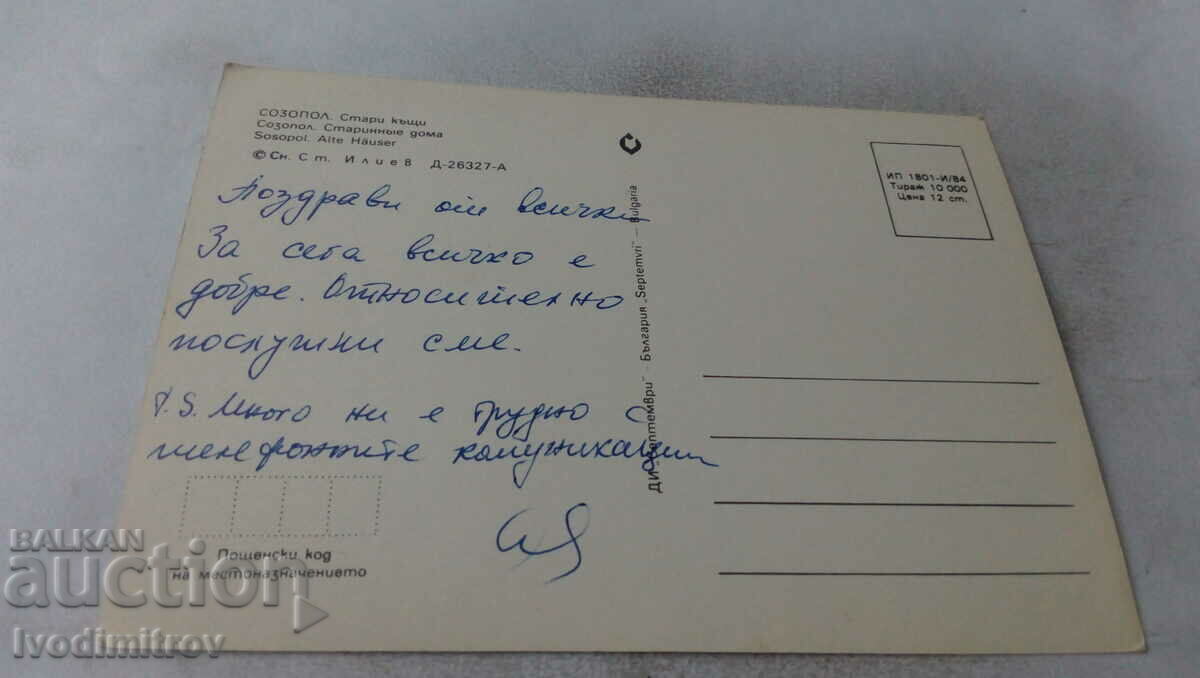 СОЗОПОЛ. Стари къщи
Созопол. Старинные дома
Sosopol. Alte Häuser
© Сн. Ст. Илиев Д-26327-А
Поздрави от всички
За сега всичко е
добре. Относително
послушни сме.
P.S. Много ни е трудно с
телефонните комуникации
Пощенски код
на местоназначението
ДИ „Септември" - България „Septemvri" - Bulgaria
ИП 1801-И/84
Тираж 10 000
Цена 12 ст.
BALKAN
auction
Ivodimitrov